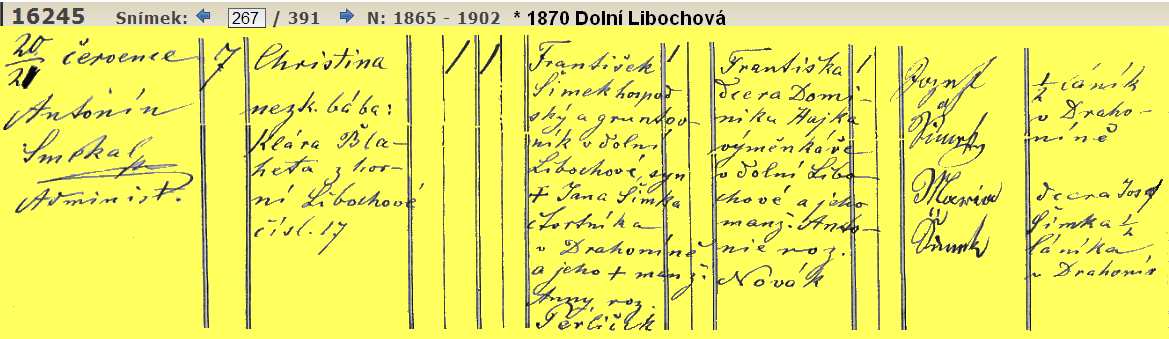 16245 Snímek: 267 / 391 N: 1865 - 1902 * 1870 Dolní Libochová
20/21 července
Antonín
Smekal
Administ.
7
Christina
nezk. bába:
Klára Bla-
heta z hor-
ní Libochové
čísl. 17
1
1
František
Šimek hospod
ský a gruntov-
ník v dolní
Libochové, syn
+ Jana Šimka
čtvrtníka
v Drahoníně
a jeho + manž:
Anny, roz.
Perliček
1
Františka
dcera Domi-
nika Hajka
výměnkáře
v dolní Libo-
chové a jeho
manž. Anto-
nie roz.
Novák
1
Jozef
Šimek
Maria
Šimek
½ láník
v Draho-
níně
dcera Josef
Šimka ½
láníka
v Drahonín